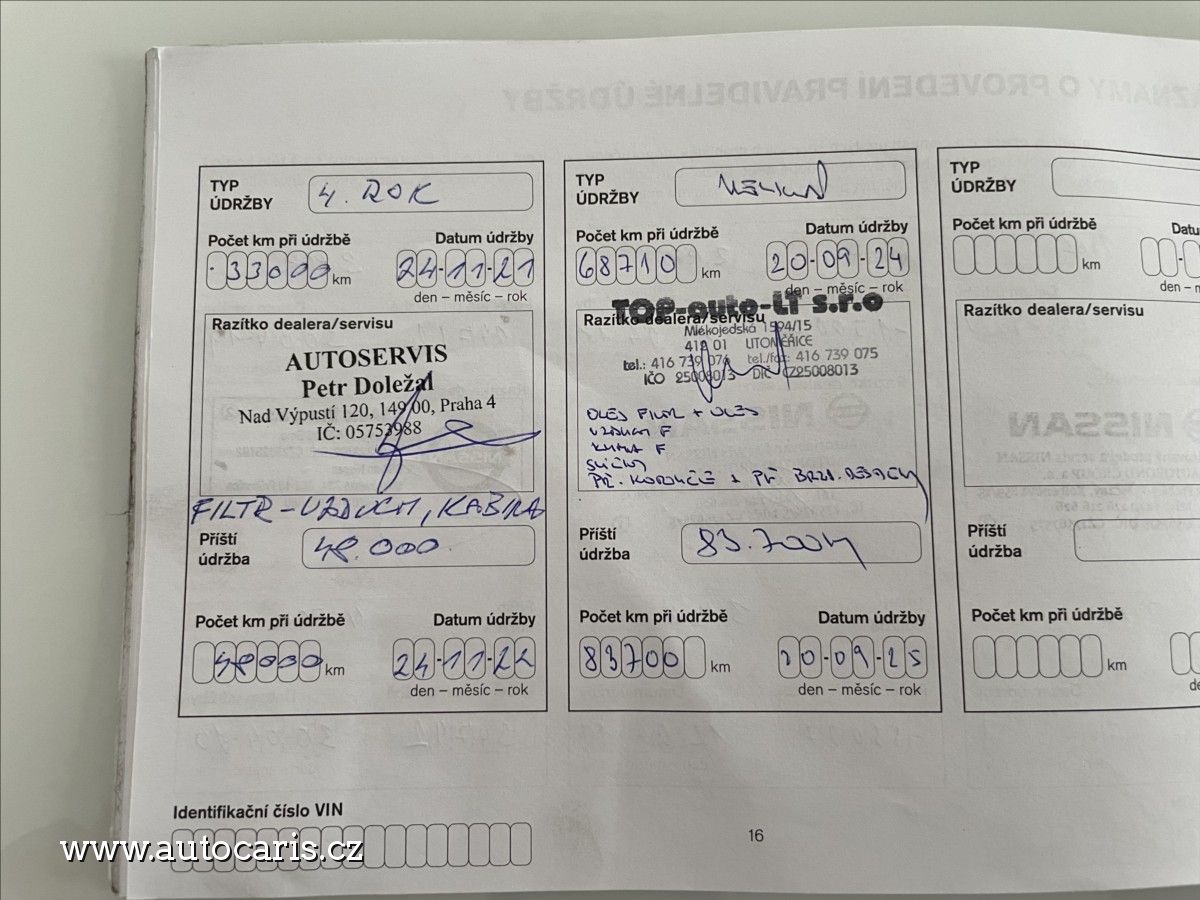 ZNAMY O PROVEDENÍ PRAVIDELNÉ ÚDRŽBY
TYP ÚDRŽBY
4. ROK
Počet km při údržbě
Datum údržby
33000 km
24-11-21
den – měsíc – rok
Razítko dealera/servisu
AUTOSERVIS
Petr Doležal
Nad Výpustí 120, 149 00, Praha 4
IČ: 05753988
FILTR - VZDUCH, KABINA
Příští údržba
48.000
Počet km při údržbě
Datum údržby
48000 km
24-11-22
den – měsíc – rok
TYP ÚDRŽBY
Počet km při údržbě
Datum údržby
68710 km
20-09-24
den – měsíc – rok
TOP-auto-LT s.r.o
Razítko dealera/servisu
Mlékojedská 1594/15
412 01 LITOMĚŘICE
tel.: 416 739 076 tel./fax: 416 739 075
IČO 25008013 DIČ CZ25008013
OLEJ FILTR + OLEJ
VZDUCH F
KABINA F
PŘ. KOTOUČE + PŘ BRZD. DESTIČKY
Příští údržba
83.700
Počet km při údržbě
Datum údržby
83700 km
20-09-25
den – měsíc – rok
TYP ÚDRŽBY
Počet km při údržbě
Datu
km
den – m
Razítko dealera/servisu
NISSAN
Příští údržba
Počet km při údržbě
km
de
Identifikační číslo VIN
16
www.autocaris.cz